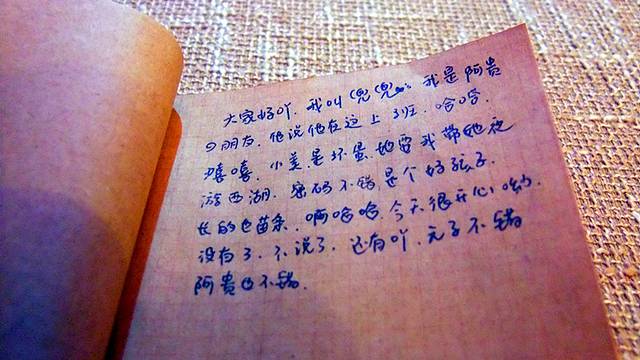 大家好吖.我叫"兜兜".我是阿贵
の朋友.他说他在这上班.哈哈.
嘻嘻.小美是坏蛋.她要我带她夜
游西湖.密码不错是个好孩子.
长的也苗条.啊哈哈.今天很开心哟.
没有了.不说了.还有吖.元子不错
阿贵也不错.